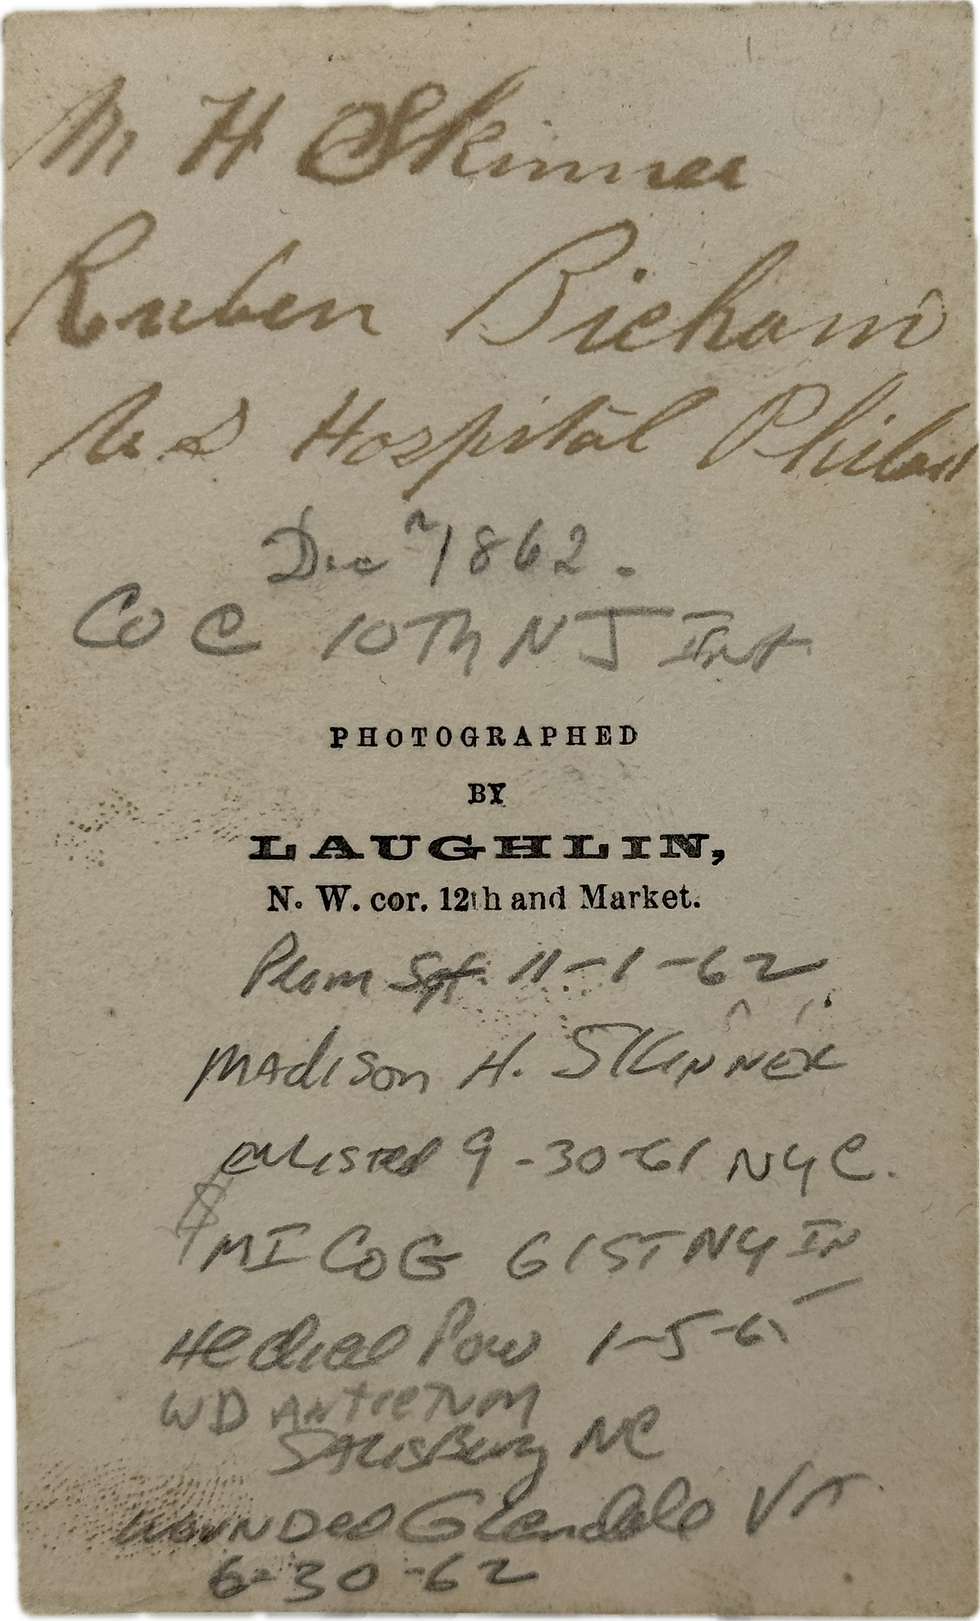 M H Skinner
Ruben Bickam
U S Hospital Philad
Dec 1862.
Co C 10Th NJ Inf
PHOTOGRAPHED
BY
LAUGHLIN,
N. W. cor. 12th and Market.
Prom Sgt. 11-1-62
MAdison H. SKiNNER
enlisted 9-30-61 NYC.
MI Co G 61ST NY IN
He died POW 1-5-65
WD ANtieTUM
SALisBury NC
wouNDed Glendale VA
6-30-62